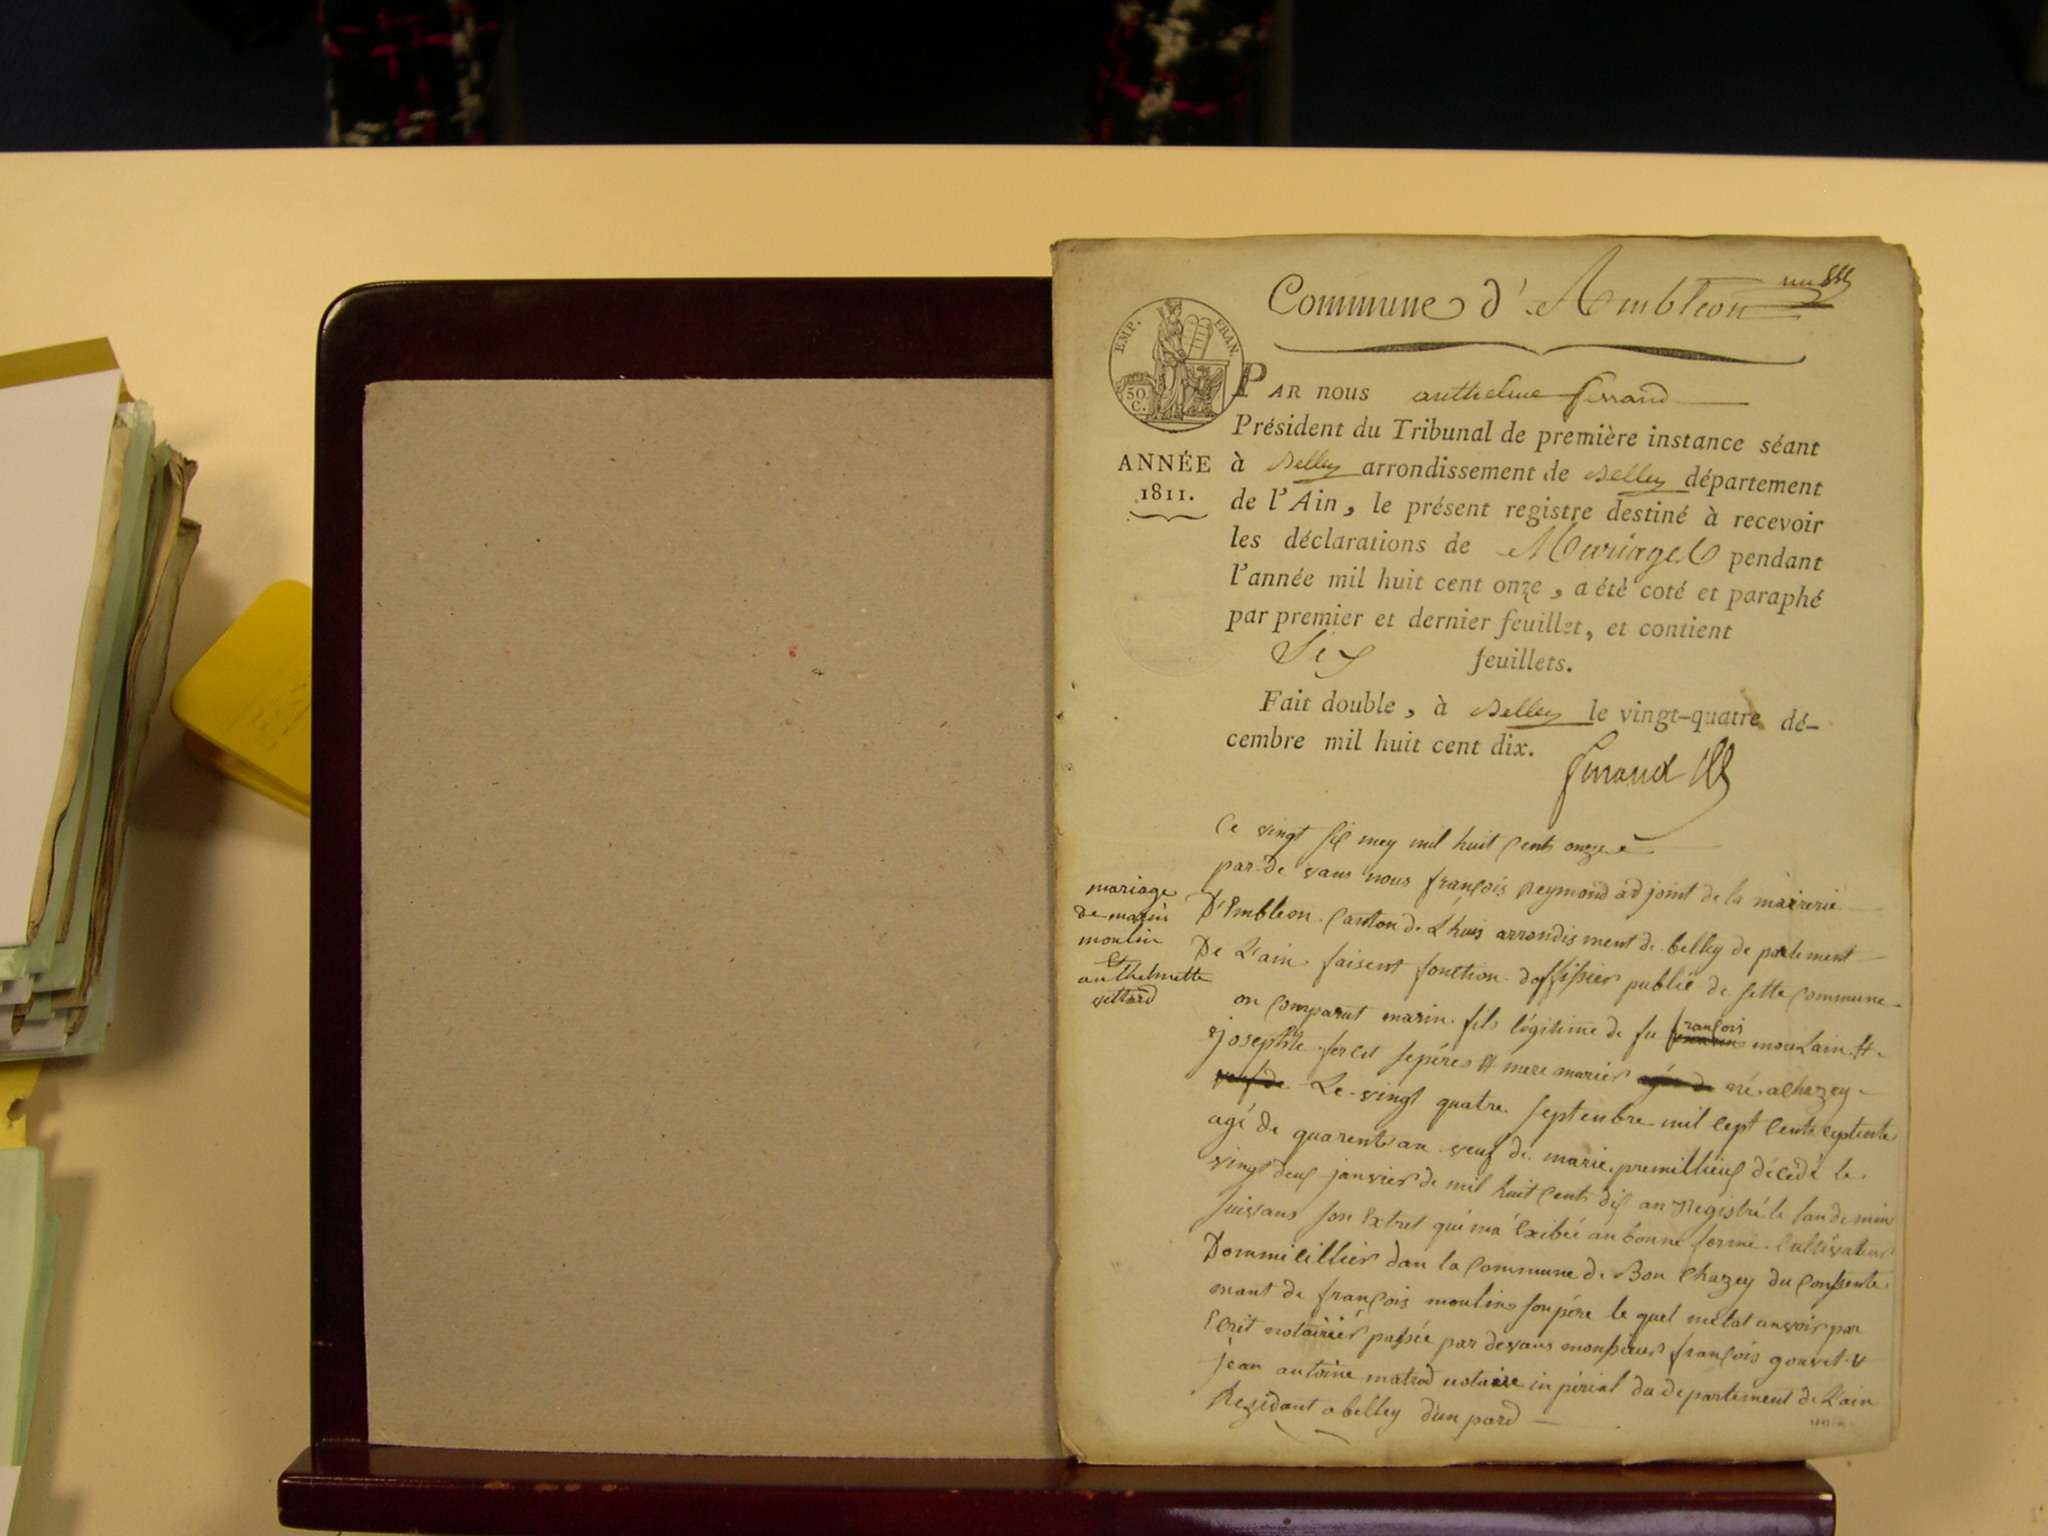 Commune d'Ambléon
EMP. FRAN.
50 C.
PAR nous anthelme ferrand
Président du Tribunal de première instance séant
ANNÉE
1811.
à Belley arrondissement de Belley département
de l'Ain, le présent registre destiné à recevoir
les déclarations de Mariages pendant
l'année mil huit cent onze, a été coté et paraphé
par premier et dernier feuillet, et contient
Six feuillets.
Fait double, à Belley le vingt-quatre dé-
cembre mil huit cent dix.
ferrand
Ce vingt six mey mil huit Cents onze
par de vans nous françois Reymond ad joint de la mairerie
mariage
de marin
moulin
et
anthelmette
vettard
D'Embleon Canton de Lhuis arrondis ment de belley de partement
De L'ain faisent fonction doffisier publié de sette Commune
on Comparut marin fils légitime de fu françois moulain et
josephte sepéres et mere marier né a Chazey
Le vingt quatre septembre mil Cept Cents
agé de quarent an veuf de marie premillieux décédé le
vingt deux janvier de mil huit Cents dix an Registré le landemin
suivans son Extret qui ma Exibée an bonne forme Cultivateur
Dommicillier dan la Commune de Bon Chazey du Consente
mant de françois moulin son père le quel par
Ecrit notairiér passée par devans monsieur françois gouvet
jean antoine matrod notaire inpérial du departement de L'ain
Rezidant a belley d'un pard